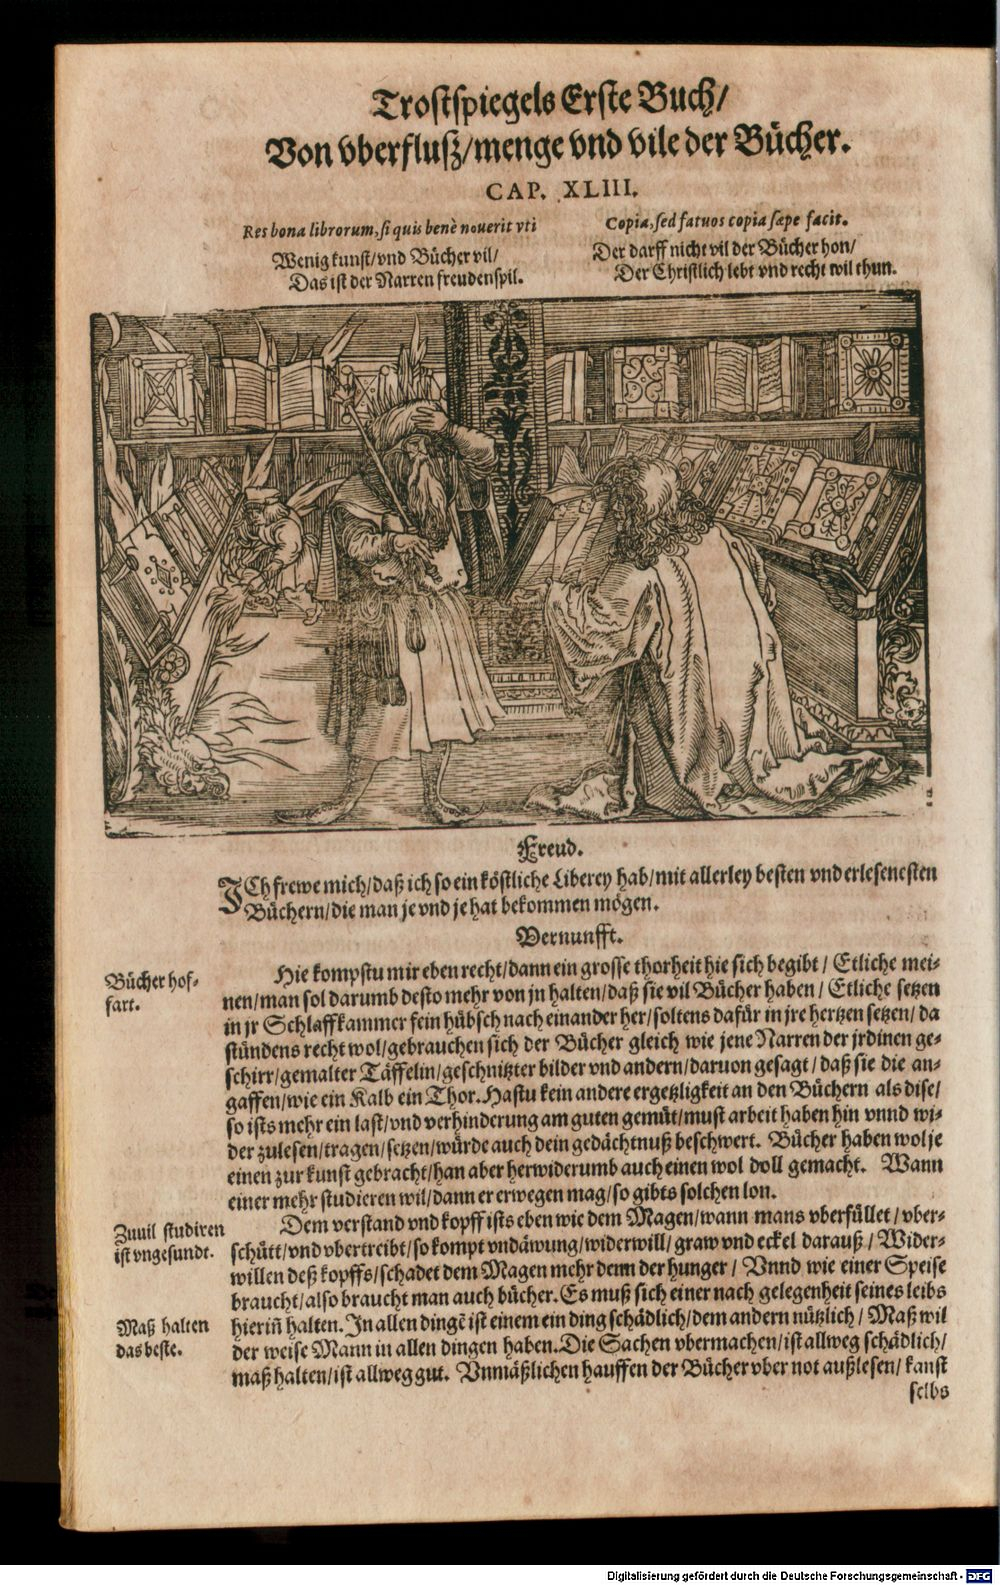 Trostspiegels Erste Buch/
Von vberflusz/menge vnd vile der Bücher.
CAP. XLIII.
Res bona librorum, si quis benè nouerit vti
Wenig kunst/vnd Bücher vil/
Das ist der Narren freudenspil.
Copia, sed fatuos copia sæpe facit.
Der darff nicht vil der Bücher hon/
Der Christlich lebt vnd recht wil thun.
Freud.
ICh frewe mich/daß ich so ein köstliche Liberey hab/mit allerley besten vnd erlesenesten
Büchern/die man je vnd je hat bekommen mögen.
Vernunfft.
Bücher hof-
fart.
Hie kompstu mir eben recht/dann ein grosse thorheit hie sich begibt/ Etliche mei-
nen/man sol darumb desto mehr von jn halten/daß sie vil Bücher haben/ Etliche setzen
in jr Schlaffkammer fein hübsch nach einander her/soltens dafür in jre hertzen setzen/ da
stündens recht wol/gebrauchen sich der Bücher gleich wie jene Narren der jrdinen ge-
schirr/gemalter Täffelin/geschnitzter bilder vnd andern/daruon gesagt/daß sie die an-
gaffen/wie ein Kalb ein Thor. Hastu kein andere ergetzligkeit an den Büchern als dise/
so ists mehr ein last/vnd verhinderung am guten gemüt/must arbeit haben hin vnnd wi-
der zulesen/tragen/setzen/würde auch dein gedächtnuß beschwert. Bücher haben wol je
einen zur kunst gebracht/han aber herwiderumb auch einen wol doll gemacht. Wann
einer mehr studieren wil/dann er erwegen mag/so gibts solchen lon.
Zuuil studiren
ist vngesundt.
Dem verstand vnd kopff ists eben wie dem Magen/wann mans vberfüllet/vber-
schütt/vnd vbertreibt/so kompt vndäwung/widerwill/graw vnd eckel darauß/ Wider-
willen deß kopffs/schadet dem Magen mehr denn der hunger/ Vnnd wie einer Speise
braucht/also braucht man auch bücher. Es muß sich einer nach gelegenheit seines leibs
Maß halten
das beste.
hieriñ halten. In allen dingẽ ist einem ein ding schädlich/dem andern nützlich/ Maß wil
der weise Mann in allen dingen haben. Die Sachen vbermachen/ist allweg schädlich/
maß halten/ist allweg gut. Vnmäßlichen hauffen der Bücher vber not außlesen/kanst
selbs
Digitalisierung gefördert durch die Deutsche Forschungsgemeinschaft - DFG